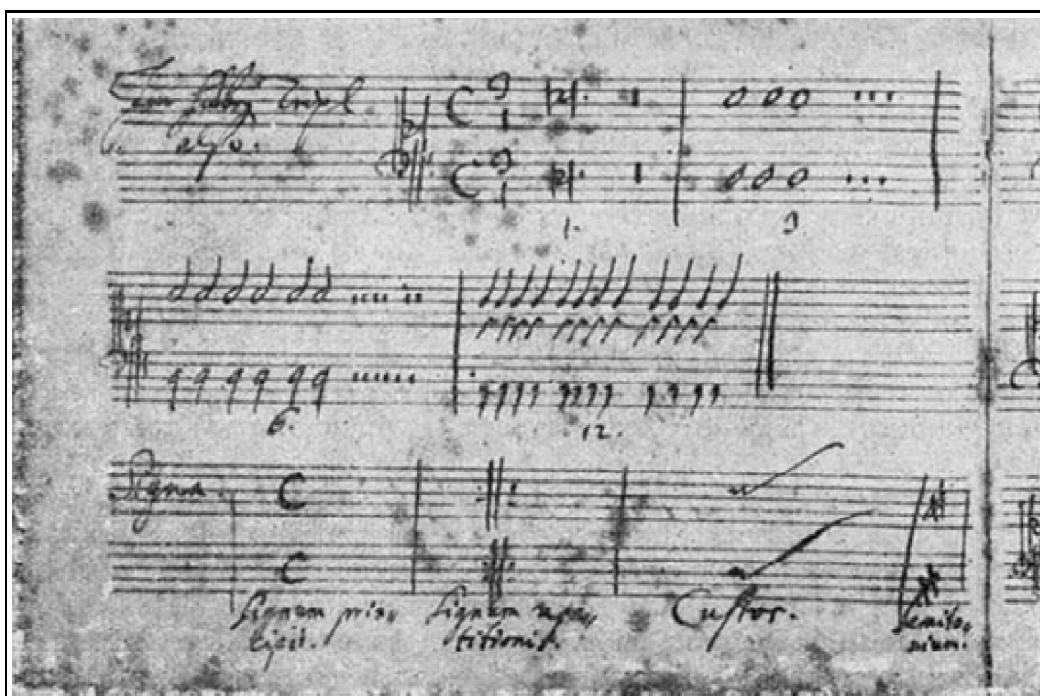 also.
1. 3
6. 12.
Signa.
Signum prin,
cipii.
Signum repe,
titionis.
Custos.
Semito,
nium.